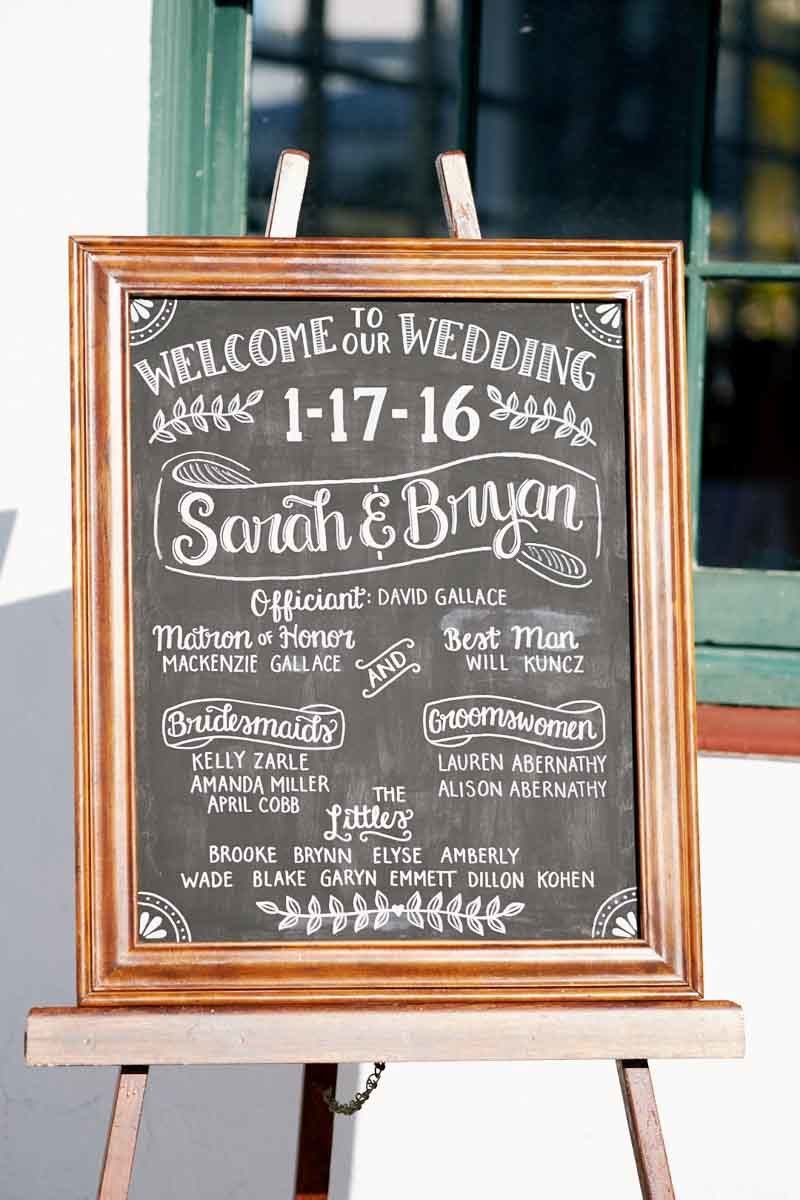 WELCOME TO OUR WEDDING
1-17-16
Sarah & Bryan
Officiant: DAVID GALLACE
Matron of Honor
MACKENZIE GALLACE
AND
Best Man
WILL KUNCZ
Bridesmaids
KELLY ZARLE
AMANDA MILLER
APRIL COBB
Groomswomen
LAUREN ABERNATHY
ALISON ABERNATHY
THE
Littles
BROOKE BRYNN ELYSE AMBERLY
WADE BLAKE GARYN EMMETT DILLON KOHEN